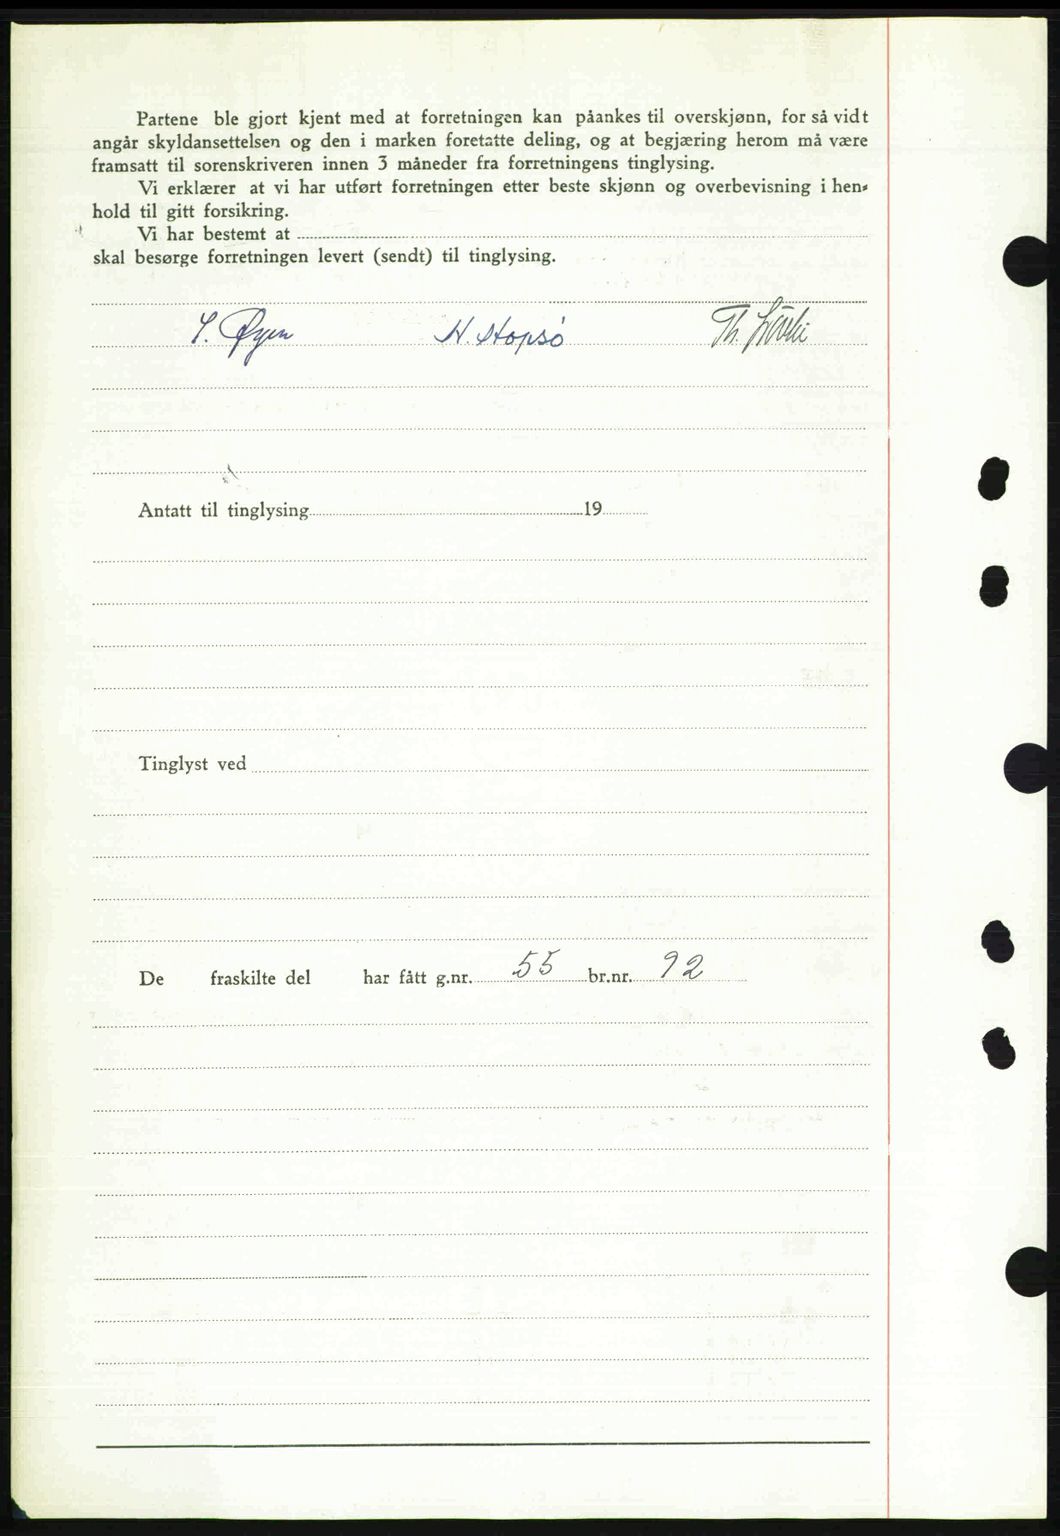 Partene ble gjort kjent med at forretningen kan påankes til overskjønn, for så vidt
angår skyldansettelsen og den i marken foretatte deling, og at begjæring herom må være
framsatt til sorenskriveren innen 3 måneder fra forretningens tinglysing.
Vi erklærer at vi har utført forretningen etter beste skjønn og overbevisning i hen-
hold til gitt forsikring.
Vi har bestemt at
skal besørge forretningen levert (sendt) til tinglysing.
Øyen H. Stopsö Th.
Antatt til tinglysing 19
Tinglyst ved
De fraskilte del har fått g.nr. 55 br.nr. 92